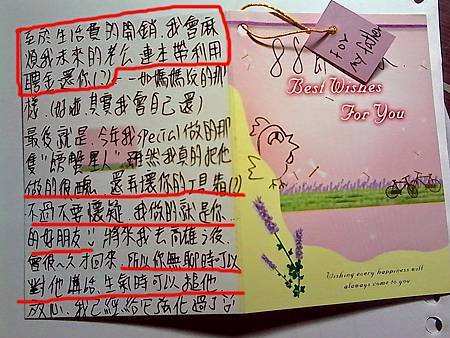 至於生活費的開銷,我會麻
煩我未來的老公連本帶利用
聘金還你(?)──如媽媽收的那
樣.(好啦,其實我會自己還)
最後就是,今年我special做的那
隻"螃蟹星人"雖然我真的把他
做的很醜,還弄壞你的工具箱(?)
不過不要懷疑,我做的就是你
的好朋友!!將來我去高雄之後,
會很~久才回來,所以你無聊時可以
對他講話,生氣時可以揍他
放心,我已經給它強化過了
for
my father
88
Best Wishes
For You
Wishing every happiness will
always come to you